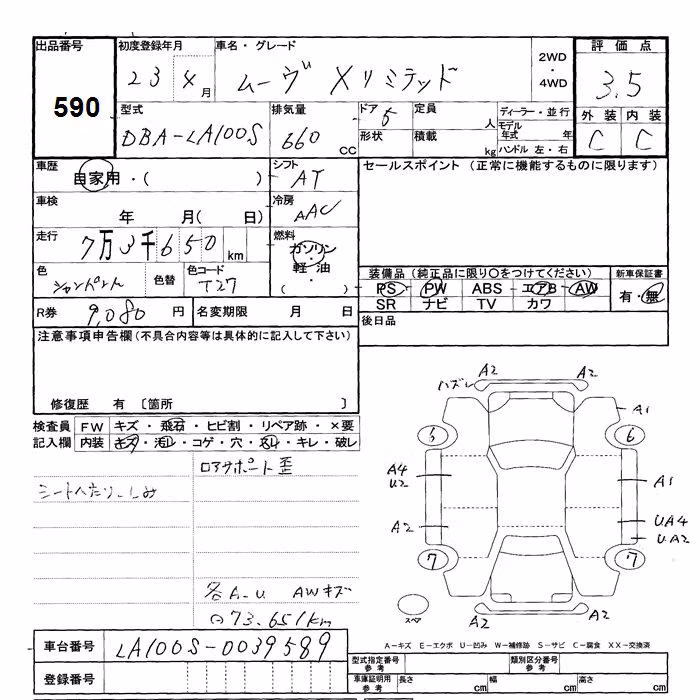 出品番号 初度登録年月 車名・グレード 2WD・4WD 評価点
590 23 4月 ムーヴ Xリミテッド 3.5
型式 排気量 ドア 5 定員 人 ディーラー・並行 外装 内装
DBA-LA100S 660 CC 形状 積載 kg モデル年式 年 ハンドル 左・右 C C
車歴 自家用・( ) シフト AT セールスポイント (正常に機能するものに限ります)
車検 年 月( 日) 冷房 AAC
走行 7万3千650km 燃料 ガソリン・軽油 ( )
色 シャンパン 色替 色コード T27 装備品(純正品に限り○をつけてください) 新車保証書
PS PW ABS エアB AW 有・無
SR ナビ TV カワ
R券 9,080円 名変期限 月 日 後日品
注意事項申告欄(不具合内容等は具体的に記入して下さい)
修復歴 有 〔箇所 〕
検査員 FW キズ・飛石・ヒビ割・リペア跡・×要
記入欄 内装 キズ・汚れ・コゲ・穴・スレ・キレ・破レ
ロアサポート歪
シートへたり、しみ
各A-U AWキズ
73.651km
ハズレ A2 A2
A1
5 6
A4 U2 A1
A2 UA4
U.A2
7 7
スペア A2 A2
A-キズ E-エクボ U-凹み W-補修跡 S-サビ C-腐食 XX-交換済
車台番号 LA100S-0039589
型式指定番号 参考 類別区分番号 参考
登録番号 車庫証明用 参考 長さ cm 幅 cm 高さ cm